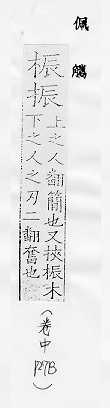 佩觿
桭振
上之人翻簷也又挾桭木
下之人之刃二翻奮也
(卷中 127B)